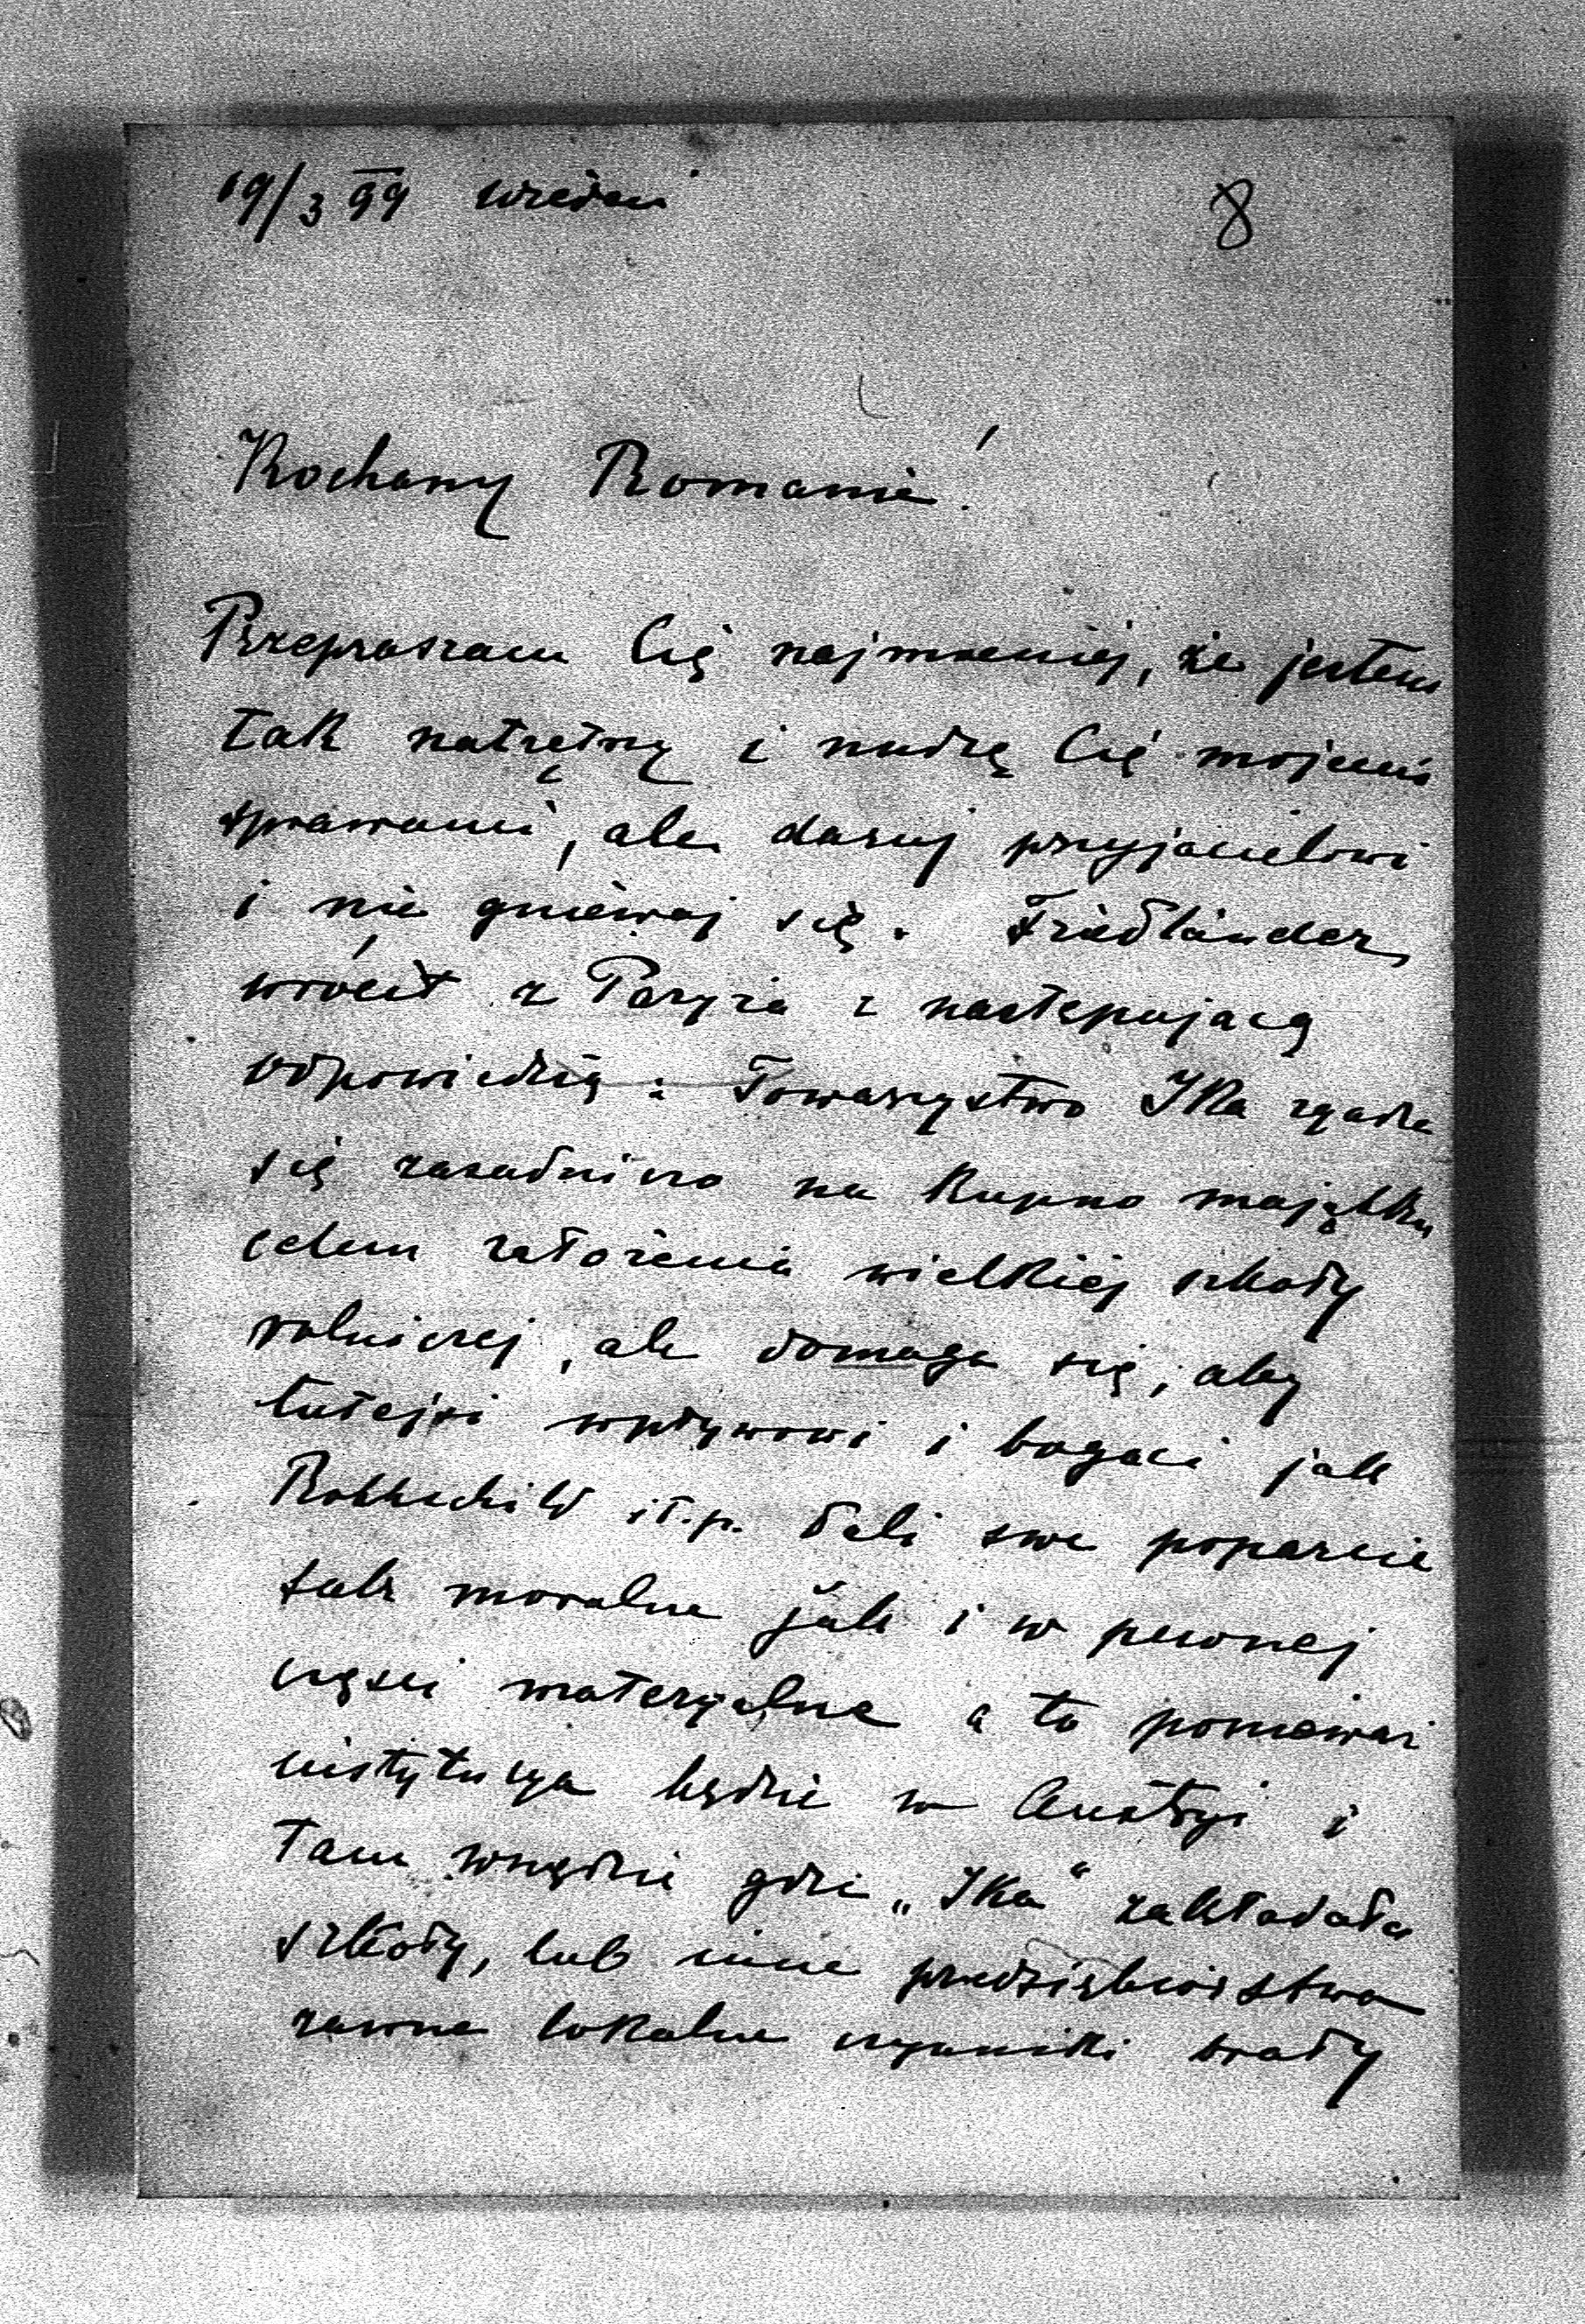 19/3 99 Wiedeń
8
Kochany Romanie!
Przepraszam Cię najmocniej, że jestem
tak natrętny i nudzę Cię mojemi
sprawami, ale daruj przyjacielowi
i nie gniewaj się. Friedländer
wrócił z Paryża z następującą
odpowiedzią: Towarzystwo IKa zgadza
się zasadniczo na kupno majątku
celem założenia wielkiej szkoły
rolniczej, ale domaga się, aby
tutejsi wpływowi i bogaci jak
Rothschild it.p. dali swe poparcie
tak moralne jak i w pewnej
części materyalne a to ponieważ
instytucya będzie w Austryi i
tam wszędzie gdzie „IKa" zakładała
szkoły, lub inne przedsiębiorstwa
zawsze lokalne czynniki brały